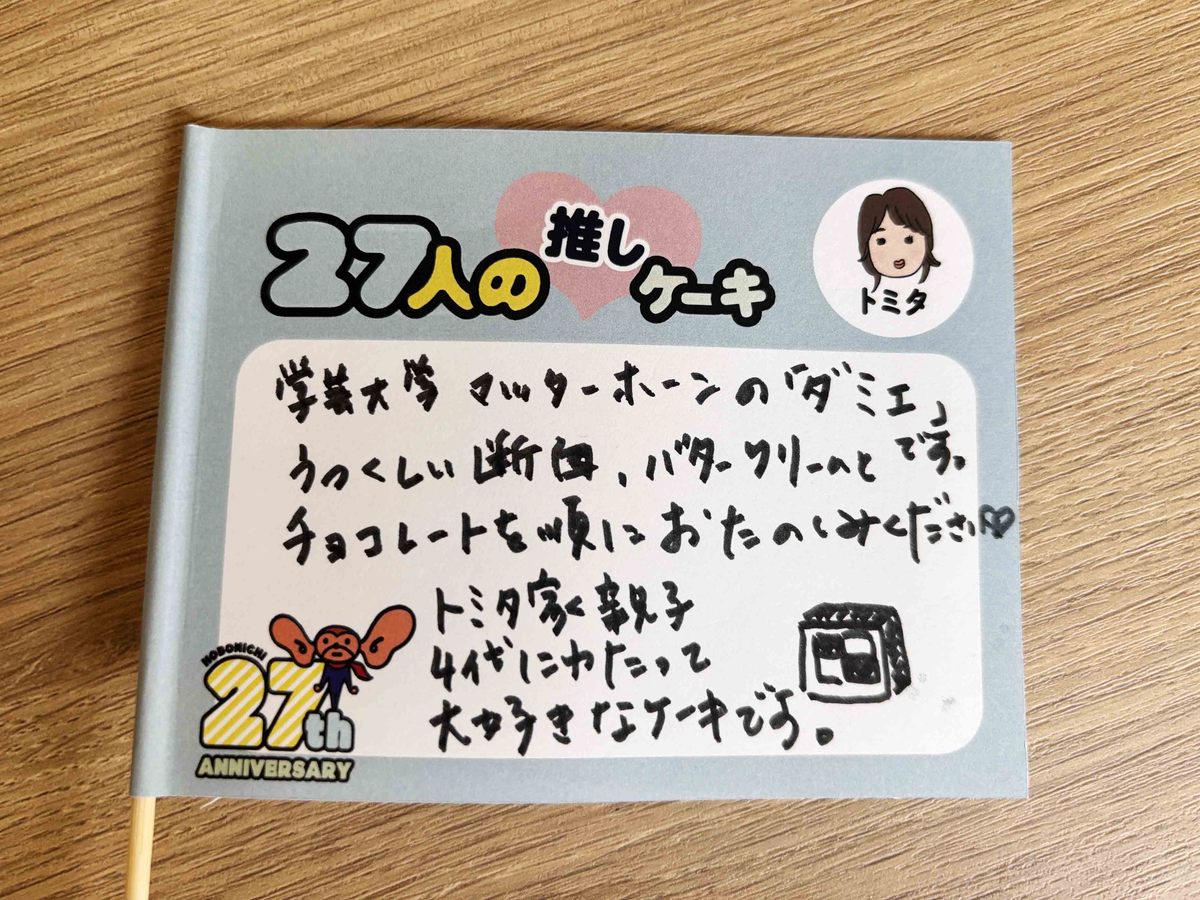 27人の推しケーキ
トミタ
学芸大学 マッターホーンの「ダミエ」
です。
うつくしい断面、バタークリームと
チョコレートを順におたのしみください♡
トミタ家く親子
4代にわたって
大好きなケーキです。
HOBONICHI
27th
ANNIVERSARY